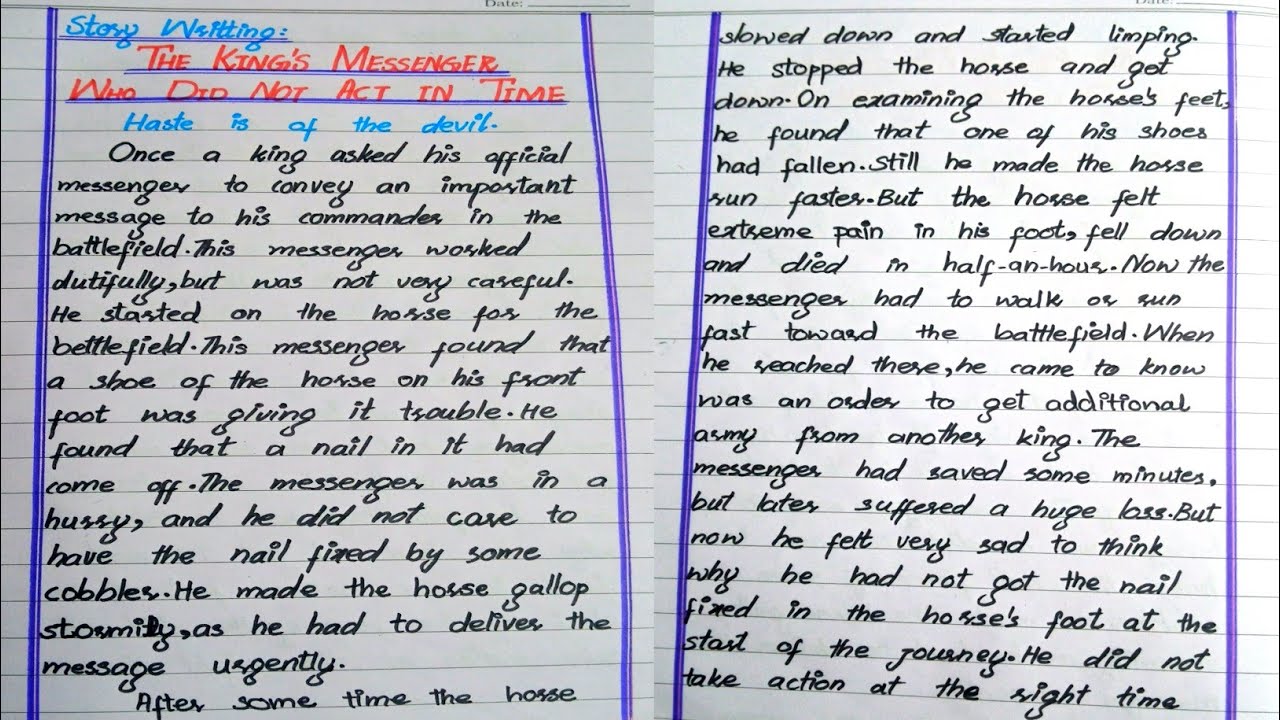 Date:
Story Writting:
THE KING'S MESSENGER
WHO DID NOT ACT IN TIME
Haste is of the devil.
Once a king asked his official
messenger to convey an important
message to his commander in the
battlefield. This messenger worked
dutifully, but was not very careful.
He started on the horse for the
bettlefield. This messenger found that
a shoe of the horse on his front
foot was giving it trouble. He
found that a nail in it had
come off. The messenger was in a
hurry, and he did not care to
have the nail fixed by some
cobbler. He made the horse gallop
stormily, as he had to deliver the
message urgently.
After some time the horse
Date:
slowed down and started limping.
He stopped the horse and got
down. On examining the horse's feet,
he found that one of his shoes
had fallen. Still he made the horse
run faster. But the horse felt
extreme pain in his foot, fell down
and died in half-an-hour. Now the
messenger had to walk or run
fast toward the battlefield. When
he reached there, he came to know
was an order to get additional
army from another king. The
messenger had saved some minutes,
but later suffered a huge loss. But
now he felt very sad to think
why he had not got the nail
fixed in the horse's foot at the
start of the journey. He did not
take action at the right time